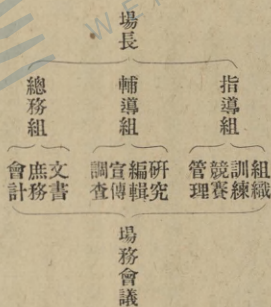 場長
指導組
輔導組
總務組
組織
訓練
競賽
管理
研究
編輯
宣傳
調查
文書
庶務
會計
場務會議